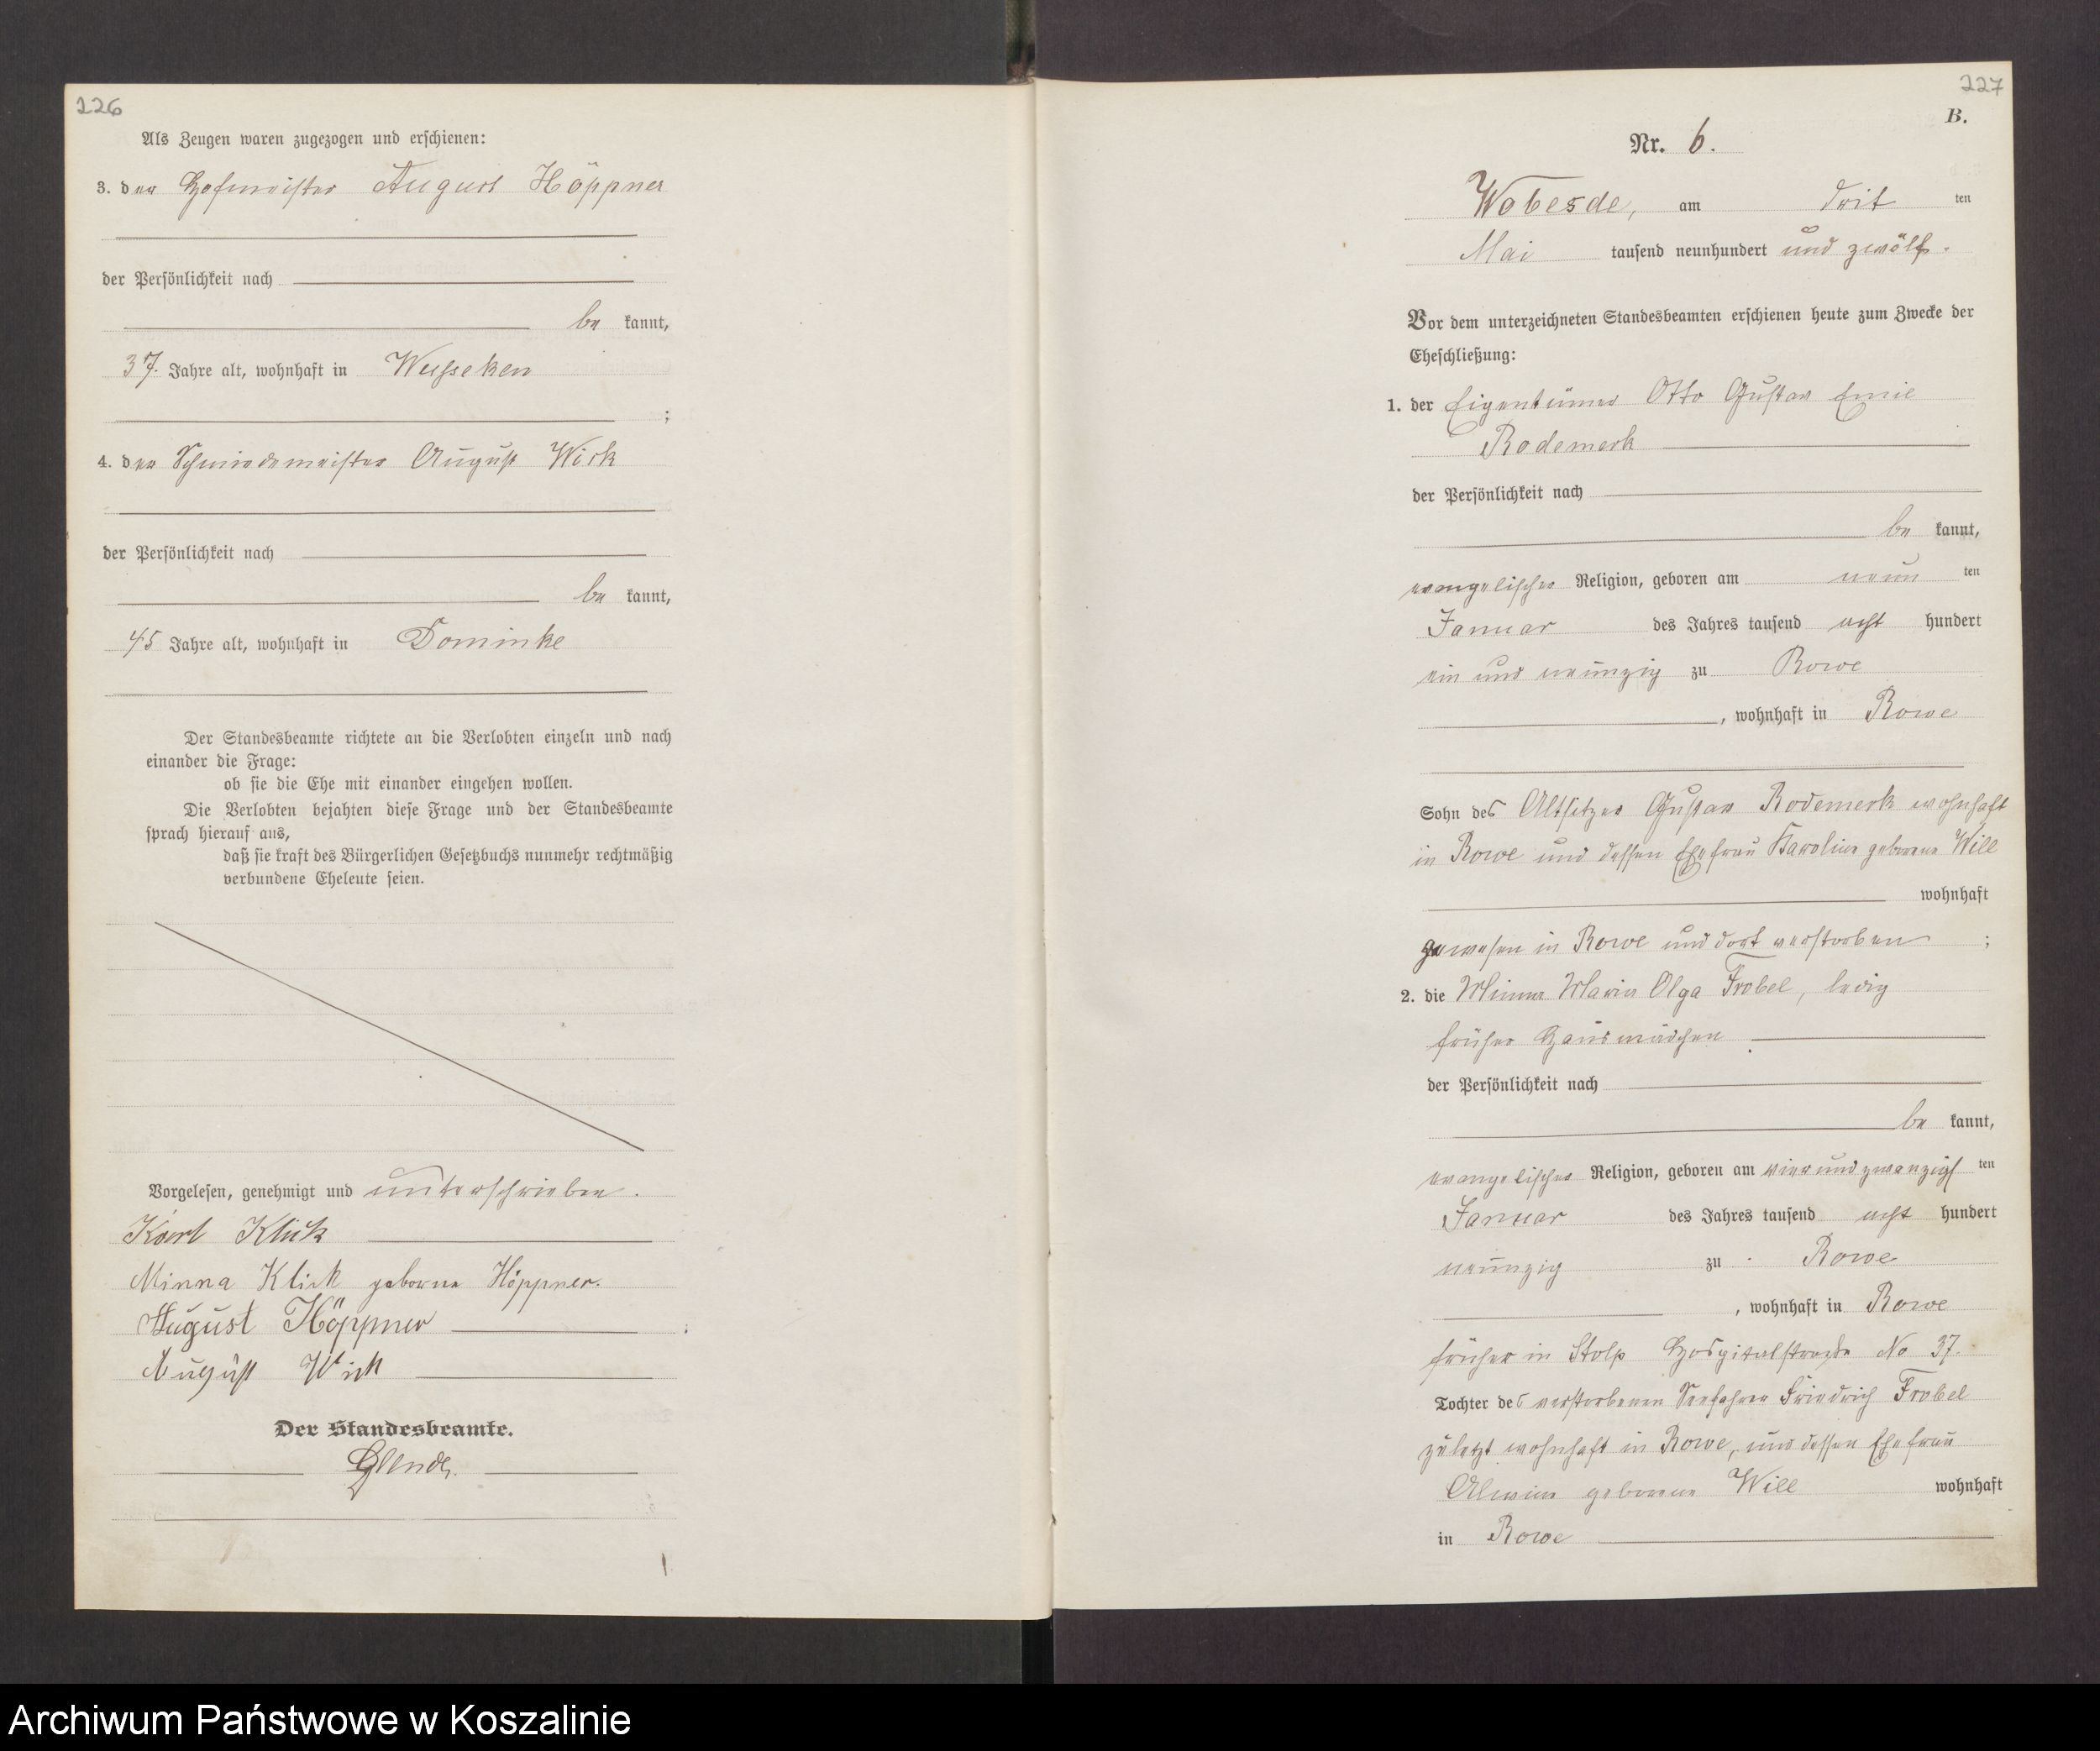 226
Als Zeugen waren zugezogen und erschienen:
3. der Hofmeister August Höppner
der Persönlichkeit nach
be kannt,
37. Jahre alt, wohnhaft in Wusseken
;
4. der Schmiedemeister August Wick
der Persönlichkeit nach
be kannt,
45 Jahre alt, wohnhaft in Dominke
Der Standesbeamte richtete an die Verlobten einzeln und nach
einander die Frage:
ob sie die Ehe mit einander eingehen wollen.
Die Verlobten bejahten diese Frage und der Standesbeamte
sprach hierauf aus,
daß sie kraft des Bürgerlichen Gesetzbuchs nunmehr rechtmäßig
verbundene Eheleute seien.
Vorgelesen, genehmigt und unterschrieben.
Karl Klick
Minna Klick geborne Höppner.
August Höppner
August Wick
Der Standesbeamte.
227
B.
Nr. 6.
Wobesde, am dritten
Mai tausend neunhundert und zwölf.
Vor dem unterzeichneten Standesbeamten erschienen heute zum Zwecke der
Eheschließung:
1. der Eigentümer Otto Gustav Emil
Rodemerk
der Persönlichkeit nach
be kannt,
evangelischer Religion, geboren am neun ten
Januar des Jahres tausend acht hundert
ein und neunzig zu Rowe
, wohnhaft in Rowe
Sohn des Altsitzer Gustav Rodemerk wohnhaft
in Rowe und dessen Ehefrau Karoline geborene Will
wohnhaft
gewesen in Rowe und dort verstorben ;
2. die Minna Maria Olga Frobel, ledig
früher Hausmädchen
der Persönlichkeit nach
be kannt,
evangelischer Religion, geboren am vierundzwanzigs ten
Januar des Jahres tausend acht hundert
neunzig zu Rowe
, wohnhaft in Rowe
früher in Stolp Hospitalstraße No 37.
Tochter des verstorbenen Seefahrer Friedrich Frobel
zuletzt wohnhaft in Rowe, und dessen Ehefrau
Alwine geborene Will wohnhaft
in Rowe
Archiwum Państwowe w Koszalinie